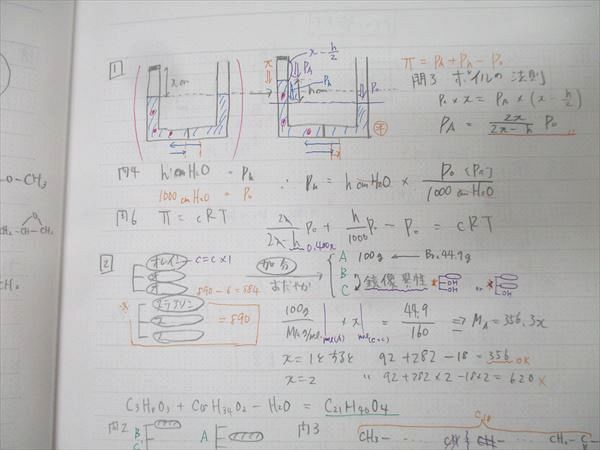 1
x cm
h cm
π
x - h/2
PA
Ph
P0
π = Ph + PA - P0
問3 ボイルの法則
P0 × x = PA × (x - h/2)
PA = 2x/(2x-h) P0
問4 h cmH2O = Ph
1000 cmH2O = P0
∴ Ph = h cmH2O × P0 [Pa]/1000 cmH2O
問6 π = cRT
2x/(2x-h) P0 + h/1000 P0 - P0 = cRT
-O-CH3
CH2-CH-CH2
CH3
2
オレイン
C=C×1
890-6=884
ステアリン
= 890
加分
おだやか
A 100g ← Br2 44.9g
B
C
鏡像異性
OH
OH
or
OH
100g/MA g/mol × x = 44.9/160 ⇒ MA = 356.3x
mol(A)
mol(C=C)
x = 1とすると 92+282-18 = 356 OK
x = 2 〃 92+282×2-18×2 = 620 ×
C3H8O3 + C18H34O2 - H2O = C21H40O4
問2
B
C
A
問3
C18
CH3- ···
CH3-C